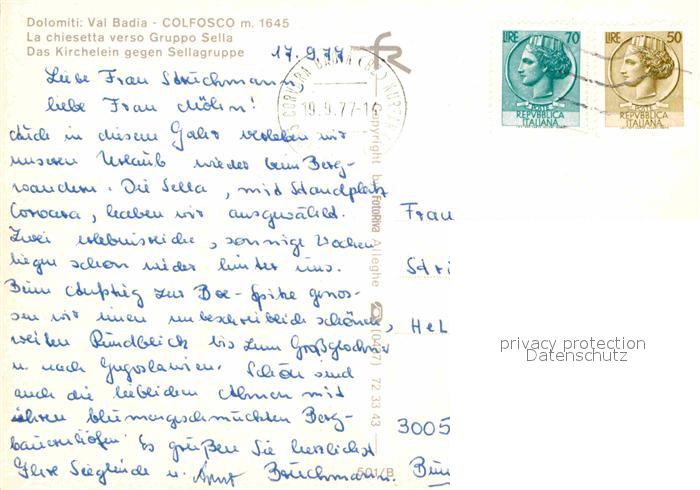 Dolomiti: Val Badia - COLFOSCO m. 1645
La chiesetta verso Gruppo Sella
Das Kirchelein gegen Sellagruppe
17.9.77
Liebe Frau Strüchmann,
liebe Frau Möhn!
Auch in diesem Jahr verleben wir
unseren Urlaub wieder beim Berg-
wandern. Die Sella, mit Standplatz
Corvara, haben wir ausgewählt.
Zwei erlebnisreiche, sonnige Wochen
liegen schon wieder hinter uns.
Beim Aufstieg zur Boe-Spitze genos-
sen wir einen unbeschreiblich schönen,
weiten Rundblick bis zum Großglockner
u. nach Jugoslawien. Schön sind
auch die lieblichen Almen mit
ihren blumengeschmückten Berg-
bauernhöfen. Es grüßen Sie herzlichst
Ihre Sieglinde u. Arnt Bruchmann.
fr
Copyright by FotoRiva Alleghe
(0437) 72 33 43
501/B
CORVARA BADIA (BZ)
19.9.77-14
LIRE 70
POSTE
REPVBBLICA
ITALIANA
LIRE 50
POSTE
REPVBBLICA
ITALIANA
Frau
Stri
Hel
3005
privacy protection
Datenschutz